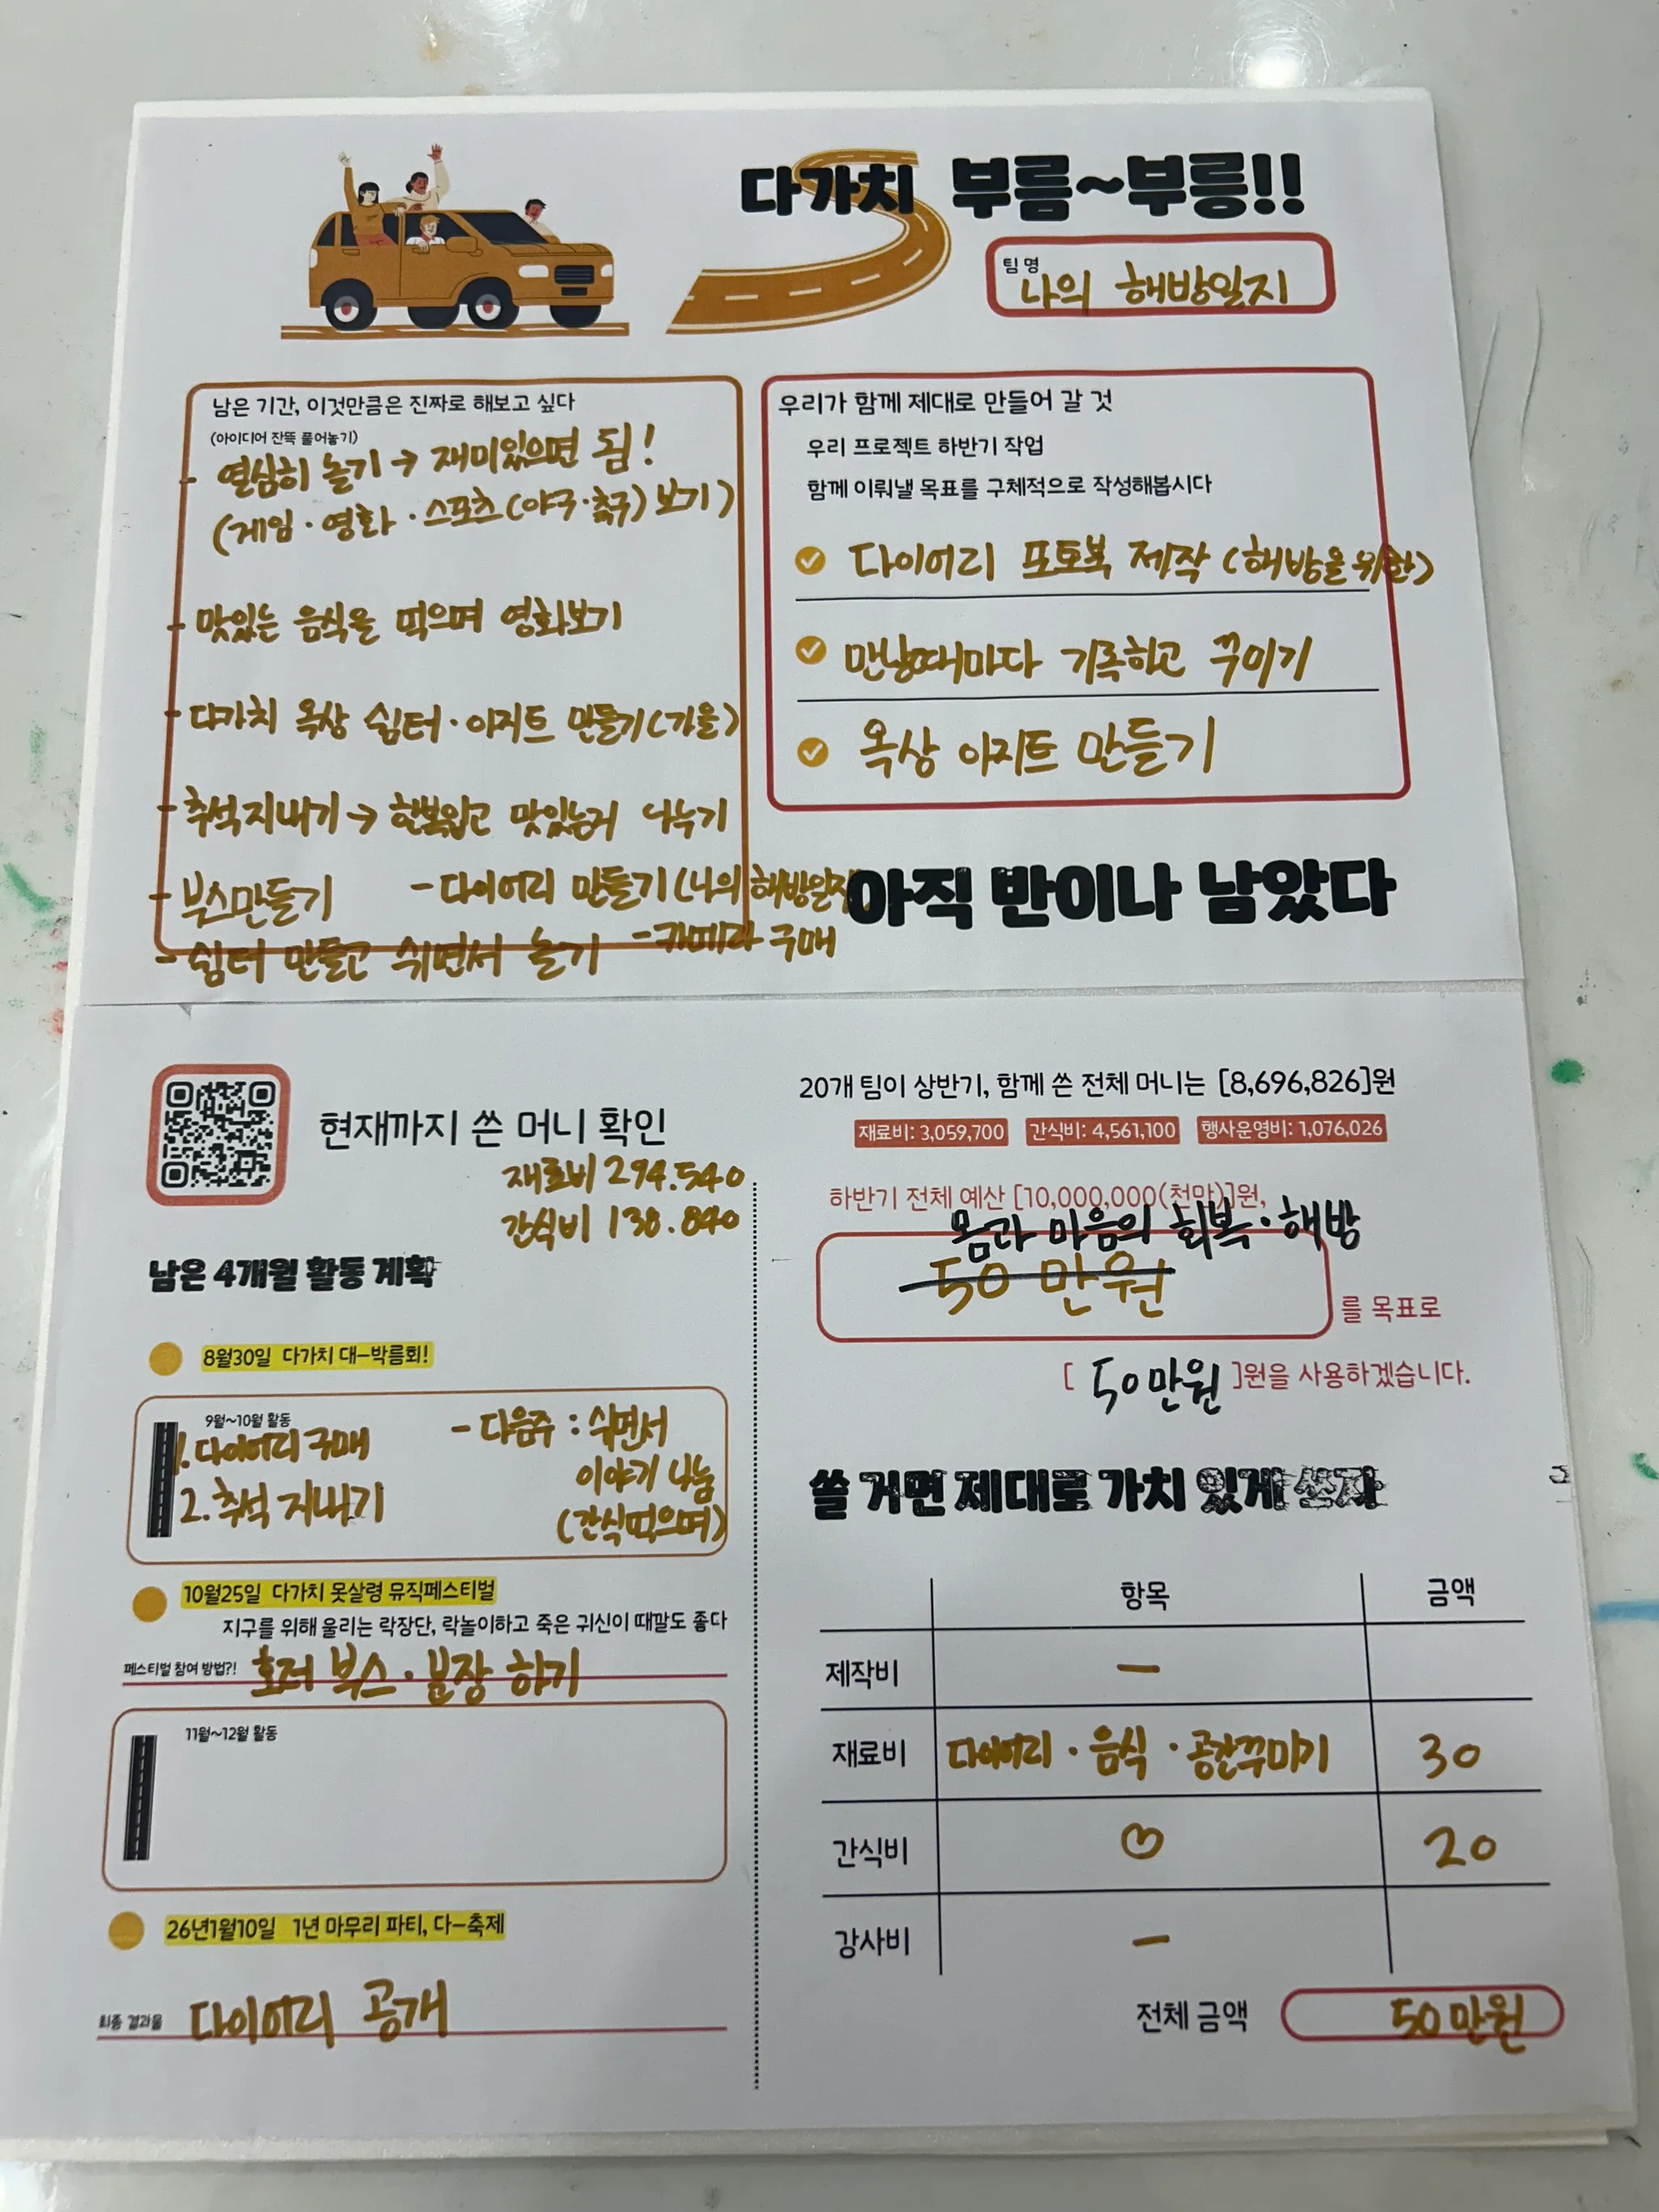 다가치 부름~부릉!!
팀명
나의 해방일지
남은 기간, 이것만큼은 진짜로 해보고 싶다
(아이디어 잔뜩 풀어놓기)
- 열심히 놀기 → 재미있으면 됨!
(게임·영화·스포츠(야구·축구) 보기)
- 맛있는 음식을 먹으며 영화보기
- 다가치 옥상 쉼터·아지트 만들기(가을)
- 추석지내기 → 한복입고 맛있는거 나누기
- 부스만들기 - 다이어리 만들기(나의 해방일지)
- 쉼터 만들고 쉬면서 놀기 - 카메라 구매
우리가 함께 제대로 만들어 갈 것
우리 프로젝트 하반기 작업
함께 이뤄낼 목표를 구체적으로 작성해봅시다
다이어리 포토북 제작 (해방을 위한)
만날때마다 기록하고 꾸미기
옥상 아지트 만들기
아직 반이나 남았다
현재까지 쓴 머니 확인
재료비 294.540
간식비 138.840
남은 4개월 활동 계획
8월30일 다가치 대-박름회!
9월~10월 활동
1. 다이어리 구매
2. 추석 지내기
- 다음주 : 쉬면서
이야기 나눔
(간식먹으며)
10월25일 다가치 못살령 뮤직페스티벌
지구를 위해 울리는 락장단, 락놀이하고 죽은 귀신이 때깔도 좋다
페스티벌 참여 방법?! 호러 부스·분장 하기
11월~12월 활동
26년1월10일 1년 마무리 파티, 다-축제
최종 결과물 다이어리 공개
20개 팀이 상반기, 함께 쓴 전체 머니는 [8,696,826]원
재료비: 3,059,700 간식비: 4,561,100 행사운영비: 1,076,026
하반기 전체 예산 [10,000,000(천만)]원,
몸과 마음의 회복·해방
50만원
를 목표로
[ 50만원 ]원을 사용하겠습니다.
쓸 거면 제대로 가치 있게 쓰자
항목 금액
제작비 -
재료비 다이어리·음식·공간꾸미기 30
간식비 20
강사비 -
전체 금액 50만원